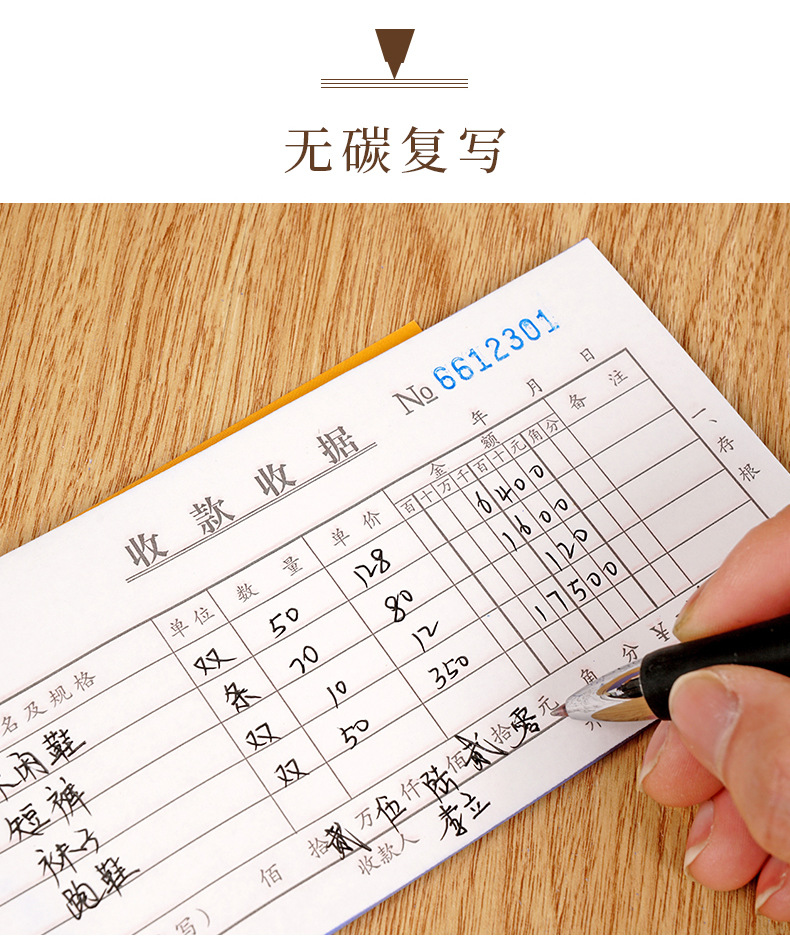 无碳复写
№ 6612301
收款收据
年 月 日
名及规格 单位 数量 单价 金额 备注
百十万千百十元角分
休闲鞋 双 50 128 6400
短裤 条 20 80 1600
袜子 双 10 12 120
跑鞋 双 50 350 17500
佰 拾贰万伍仟陆佰贰拾零元 角 分
收款人 李立
写)
一、存根